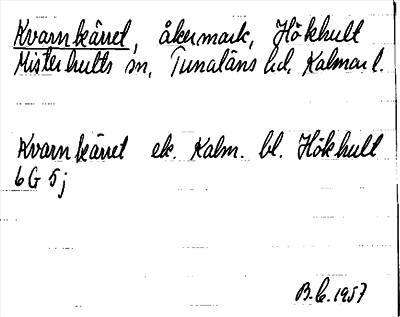 Kvarnkärret, åkermark, Hökhult
Misterhults sn, Tunaläns hd, Kalmar l.
Kvarnkärret ek. Kalm. bl. Hökhult
6G 5j
B.C. 1957